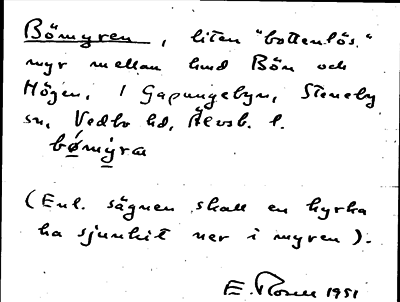 Bömyren, liten "bottenlös"
myr mellan hmd Bön och
Högen, i Gapungebyn, Steneby
sn, Vedbo hd, Älvsb. l.
bømyra
(Enl. sägnen skall en kyrka
ha sjunkit ner i myren).
E. 1951